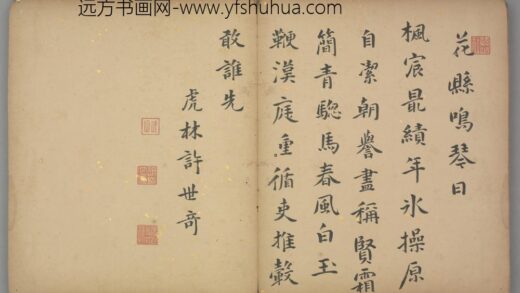 远方书画网-www.yfshuhua.com
花縣鳴琴日
楓宸最績年氷操原
自潔朝譽盡稱賢霜
簡青驄馬春風白玉
鞭漠庭重循吏推轂
敢誰先
虎林許世奇